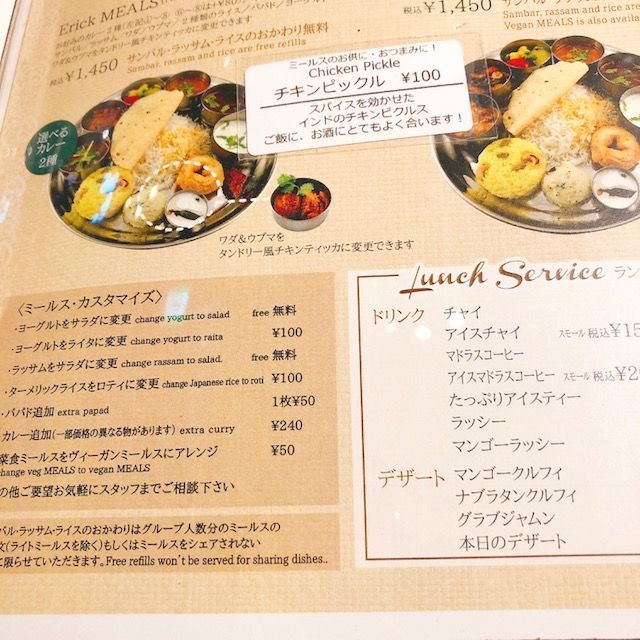 Erick MEALS
ワダ&ウプマをタンドリー風チキンティッカに変更できます
税込 ¥1,450
サンバル・ラッサム・ライスのおかわり無料
Sambar, rassam and rice are free refills
税込 ¥1,450
Sambar, rassam and rice are
Vegan MEALS is also
ミールスのお供に・おつまみに！
Chicken Pickle
チキンピックル ¥100
スパイスを効かせた
インドのチキンピクルス
ご飯に、お酒にとてもよく合います！
選べる
カレー
2種
ワダ&ウプマを
タンドリー風チキンティッカに変更できます
〈ミールス・カスタマイズ〉
・ヨーグルトをサラダに変更 change yogurt to salad free 無料
・ヨーグルトをライタに変更 change yogurt to raita ¥100
・ラッサムをサラダに変更 change rassam to salad. free 無料
・ターメリックライスをロティに変更 change Japanese rice to roti ¥100
・パパド追加 extra papad 1枚¥50
カレー追加(一部価格の異なる物があります) extra curry ¥240
菜食ミールスをヴィーガンミールスにアレンジ ¥50
change veg MEALS to vegan MEALS
の他ご要望お気軽にスタッフまでご相談下さい
バル・ラッサム・ライスのおかわりはグループ人数分のミールスの
文(ライトミールスを除く)もしくはミールスをシェアされない
に限らせていただきます。Free refills won't be served for sharing dishes..
Lunch Service ラン
ドリンク チャイ
アイスチャイ スモール 税込¥15
マドラスコーヒー
アイスマドラスコーヒー スモール 税込¥2
たっぷりアイスティー
ラッシー
マンゴーラッシー
デザート マンゴークルフィ
ナブラタンクルフィ
グラブジャムン
本日のデザート